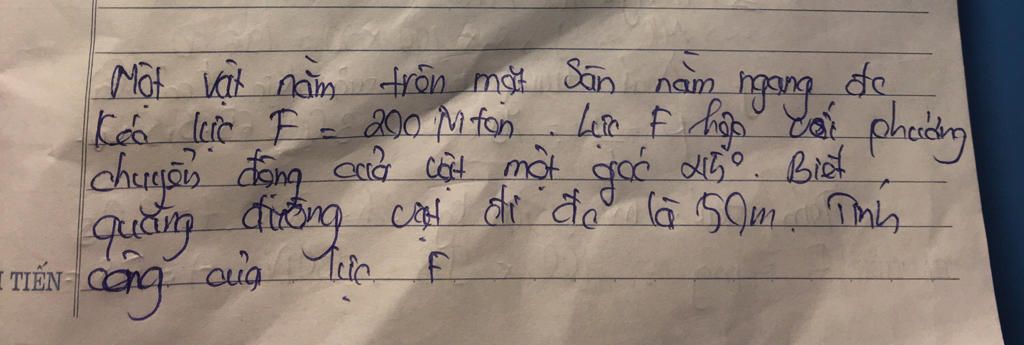 Một vật nằm trên mặt sàn nằm ngang đc
kéo lực F = 200 Niton. Lực F hợp với phương
chuyển động của vật một góc 45°. Biết
quãng đường vật đi đc là 50m. Tính
công của lực F
TIẾN